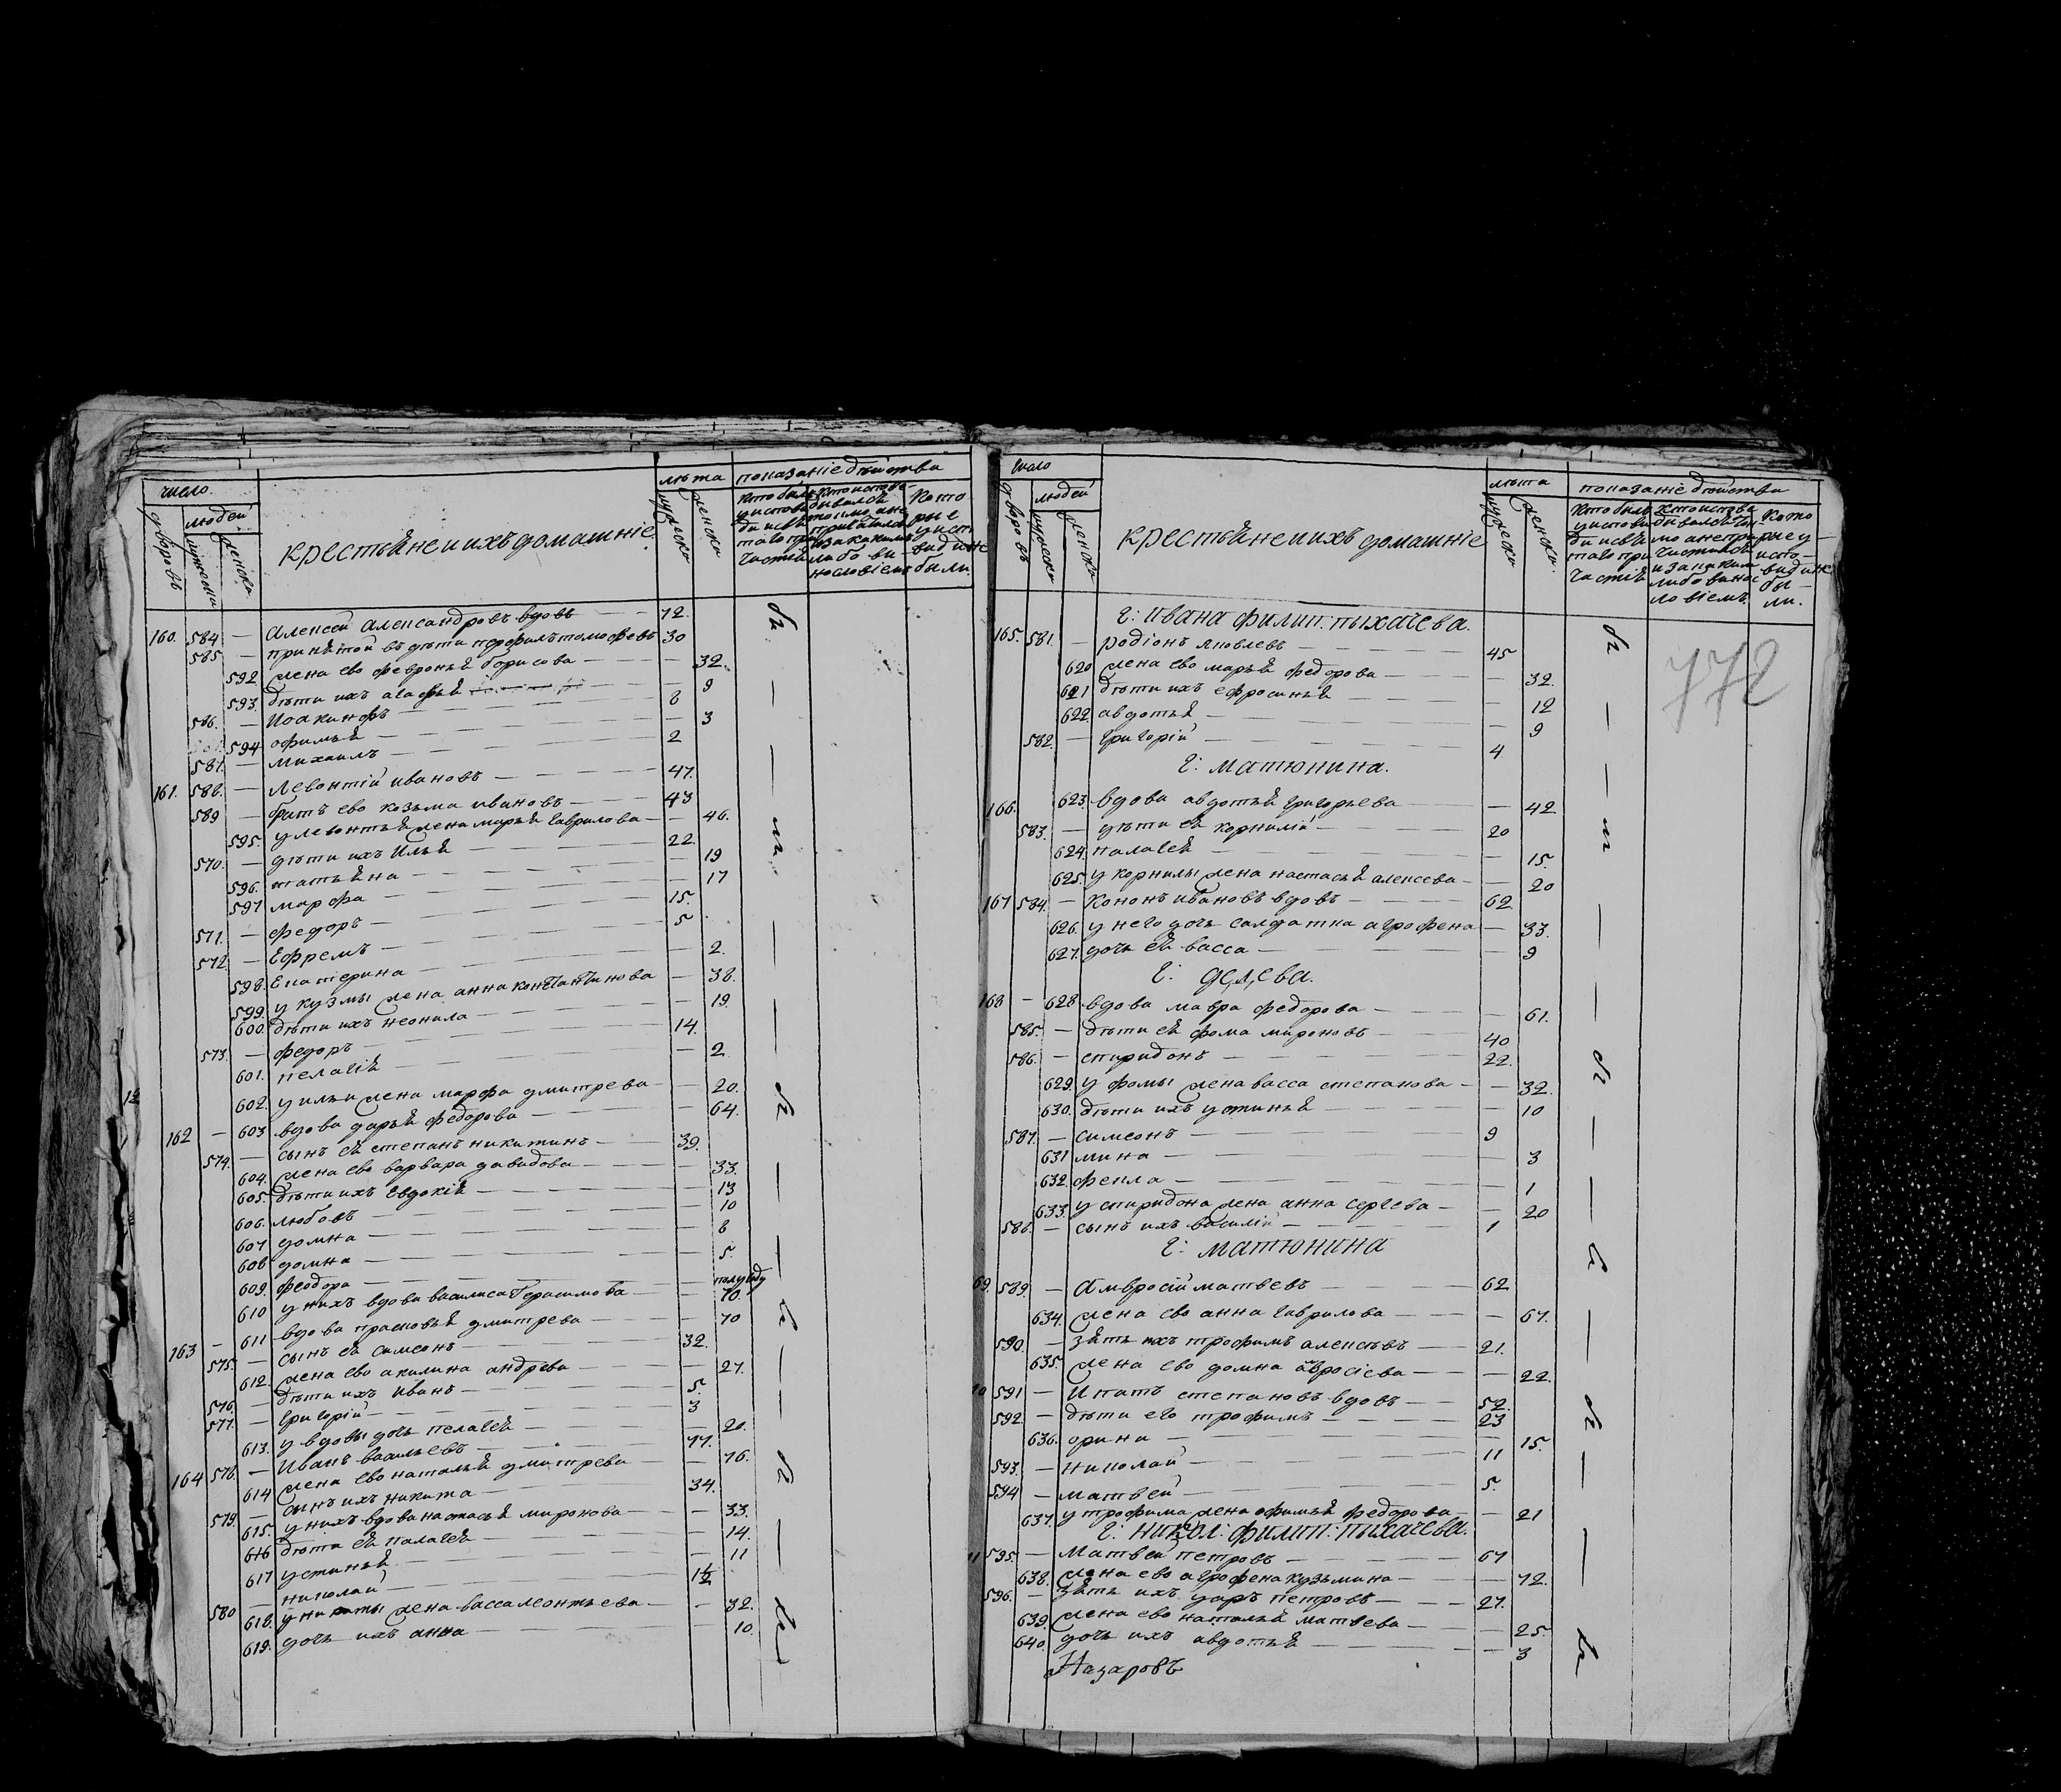 число.
людей
дворовъ
мужеска
женска
крестьяне и ихъ домашніе
лѣта
мужеска
женска
показаніе дѣйства
160. 584 — Алексей Александровъ вдовъ — 72.
585 — принятой въ дѣти перфилъ тимофевъ 30
592 жена ево февронья борисова — 32.
593. дѣти ихъ агафья — 9
586. — Иоакинфъ — 8
594 офимья — 3
587. — михаилъ — 2
161. 588. — Левонтій ивановъ — 47.
589 — братъ ево козьма ивановъ — 43
595. у левонтья жена марья гаврилова — 46.
570. — дѣти ихъ Илья — 22.
596. татьяна — 19
597 марфа — 17
571. — федоръ — 15.
572. — Ефремъ — 5
598. Екатерина — 2.
599. у кузмы жена анна константинова — 38.
600. дѣти ихъ неонила — 19.
573. — федоръ — 14.
601. пелагія — 2
602. у ильи жена марфа дмитрева — 20.
162 — 603 вдова дарья федорова — 64.
574. — сынъ ея степанъ никитинъ — 39.
604. жена ево варвара давидова — 33.
605. дѣти ихъ Евдокія — 13
606. любовь — 10
607 домна — 8
608 домна — 5.
609. феодора — полугоду
610 у нихъ вдова василиса Герасимова — 70.
163 — 611 вдова прасковья дмитрева — 70
575. — сынъ ея симеонъ — 32.
612. жена ево акилина андрева — 27.
576. — дѣти ихъ иванъ — 5.
577. — григорій — 3
613. у вдовы дочь пелагея — 20.
164 578. — Иванъ васильевъ — 77.
614 жена ево наталья дмитрева — 76.
579. — сынъ ихъ никита — 34.
615. у нихъ вдова настасья миронова — 33.
616 дѣти ея палагея — 14.
617 устинья — 11
580 — николай — 1½
618. у никиты жена васса леонтьева — 32.
619. дочь ихъ анна — 10.
число
людей
дворовъ
мужеска
женска
крестьяне и ихъ домашніе
лѣта
мужеска
женска.
показаніе дѣйства
772
Г: ивана филип: пыхачева.
165. 581. — родіонъ яковлевъ — 45
620 жена ево марья федорова — 32.
621 дѣти ихъ ефросинья — 12
622 авдотья — 9
582. — григорій — 4
Г: матюнина.
166. 623. вдова авдотья григорьева — 42.
583. — дѣти ея корнилій — 20
624. палагея — 15.
625. у корнилы жена настасья алексева — 20
167 584. — кононъ ивановъ вдовъ — 62
626. у него дочь салдатка агрофена — 33.
627. дочь ея васса — 9
168 — 628 вдова мавра федорова — 61.
585. — дѣти ея фома мироновъ — 40
586. — спиридонъ — 22.
629. у фомы жена васса степанова — 32.
630. дѣти ихъ устинья — 10
587. — симеонъ — 9
631 мина — 3
632. фекла — 1
633. у спиридона жена анна сергева — 20
588. — сынъ ихъ василій — 1
Г: матюнина
69. 589. — Амвросій матвевъ — 62
634. жена ево анна гаврилова — 67.
590. — зять ихъ трофимъ алексѣвъ — 21.
635. жена ево домна амвросіева — 22.
70 591 — Ипатъ степановъ вдовъ — 52.
592. — дѣти его трофимъ — 23
636. орина — 15.
593. — николай — 11
594 — матвей — 5.
637. у трофима жена офимья федорова — 21
Г: никол: филип: пыхачева.
71 595. — матвей петровъ — 67
638. жена ево агрофена кузьмина — 72.
596. — зять ихъ уаръ петровъ — 27.
639. жена ево наталья матвева — 25.
640. дочь ихъ авдотья — 3
Назаровъ